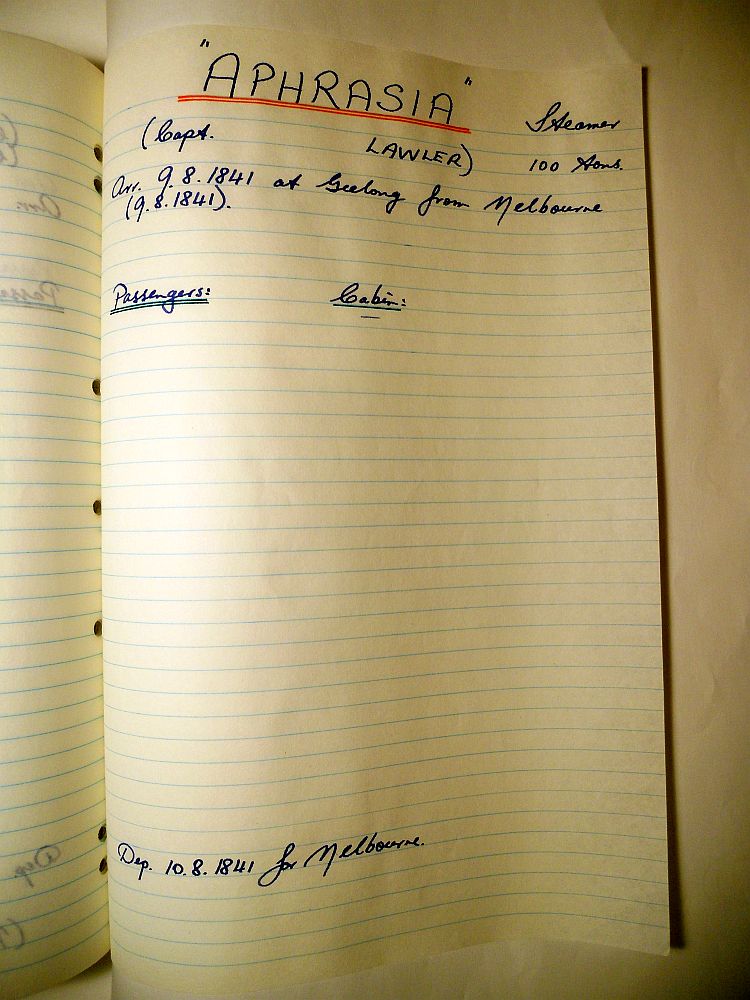 "APHRASIA"
Steamer
(Capt. LAWLER)
100 tons.
Arr. 9.8.1841 at Geelong from Melbourne
(9.8.1841).
Passengers: Cabin:
Dep. 10.8.1841 for Melbourne.